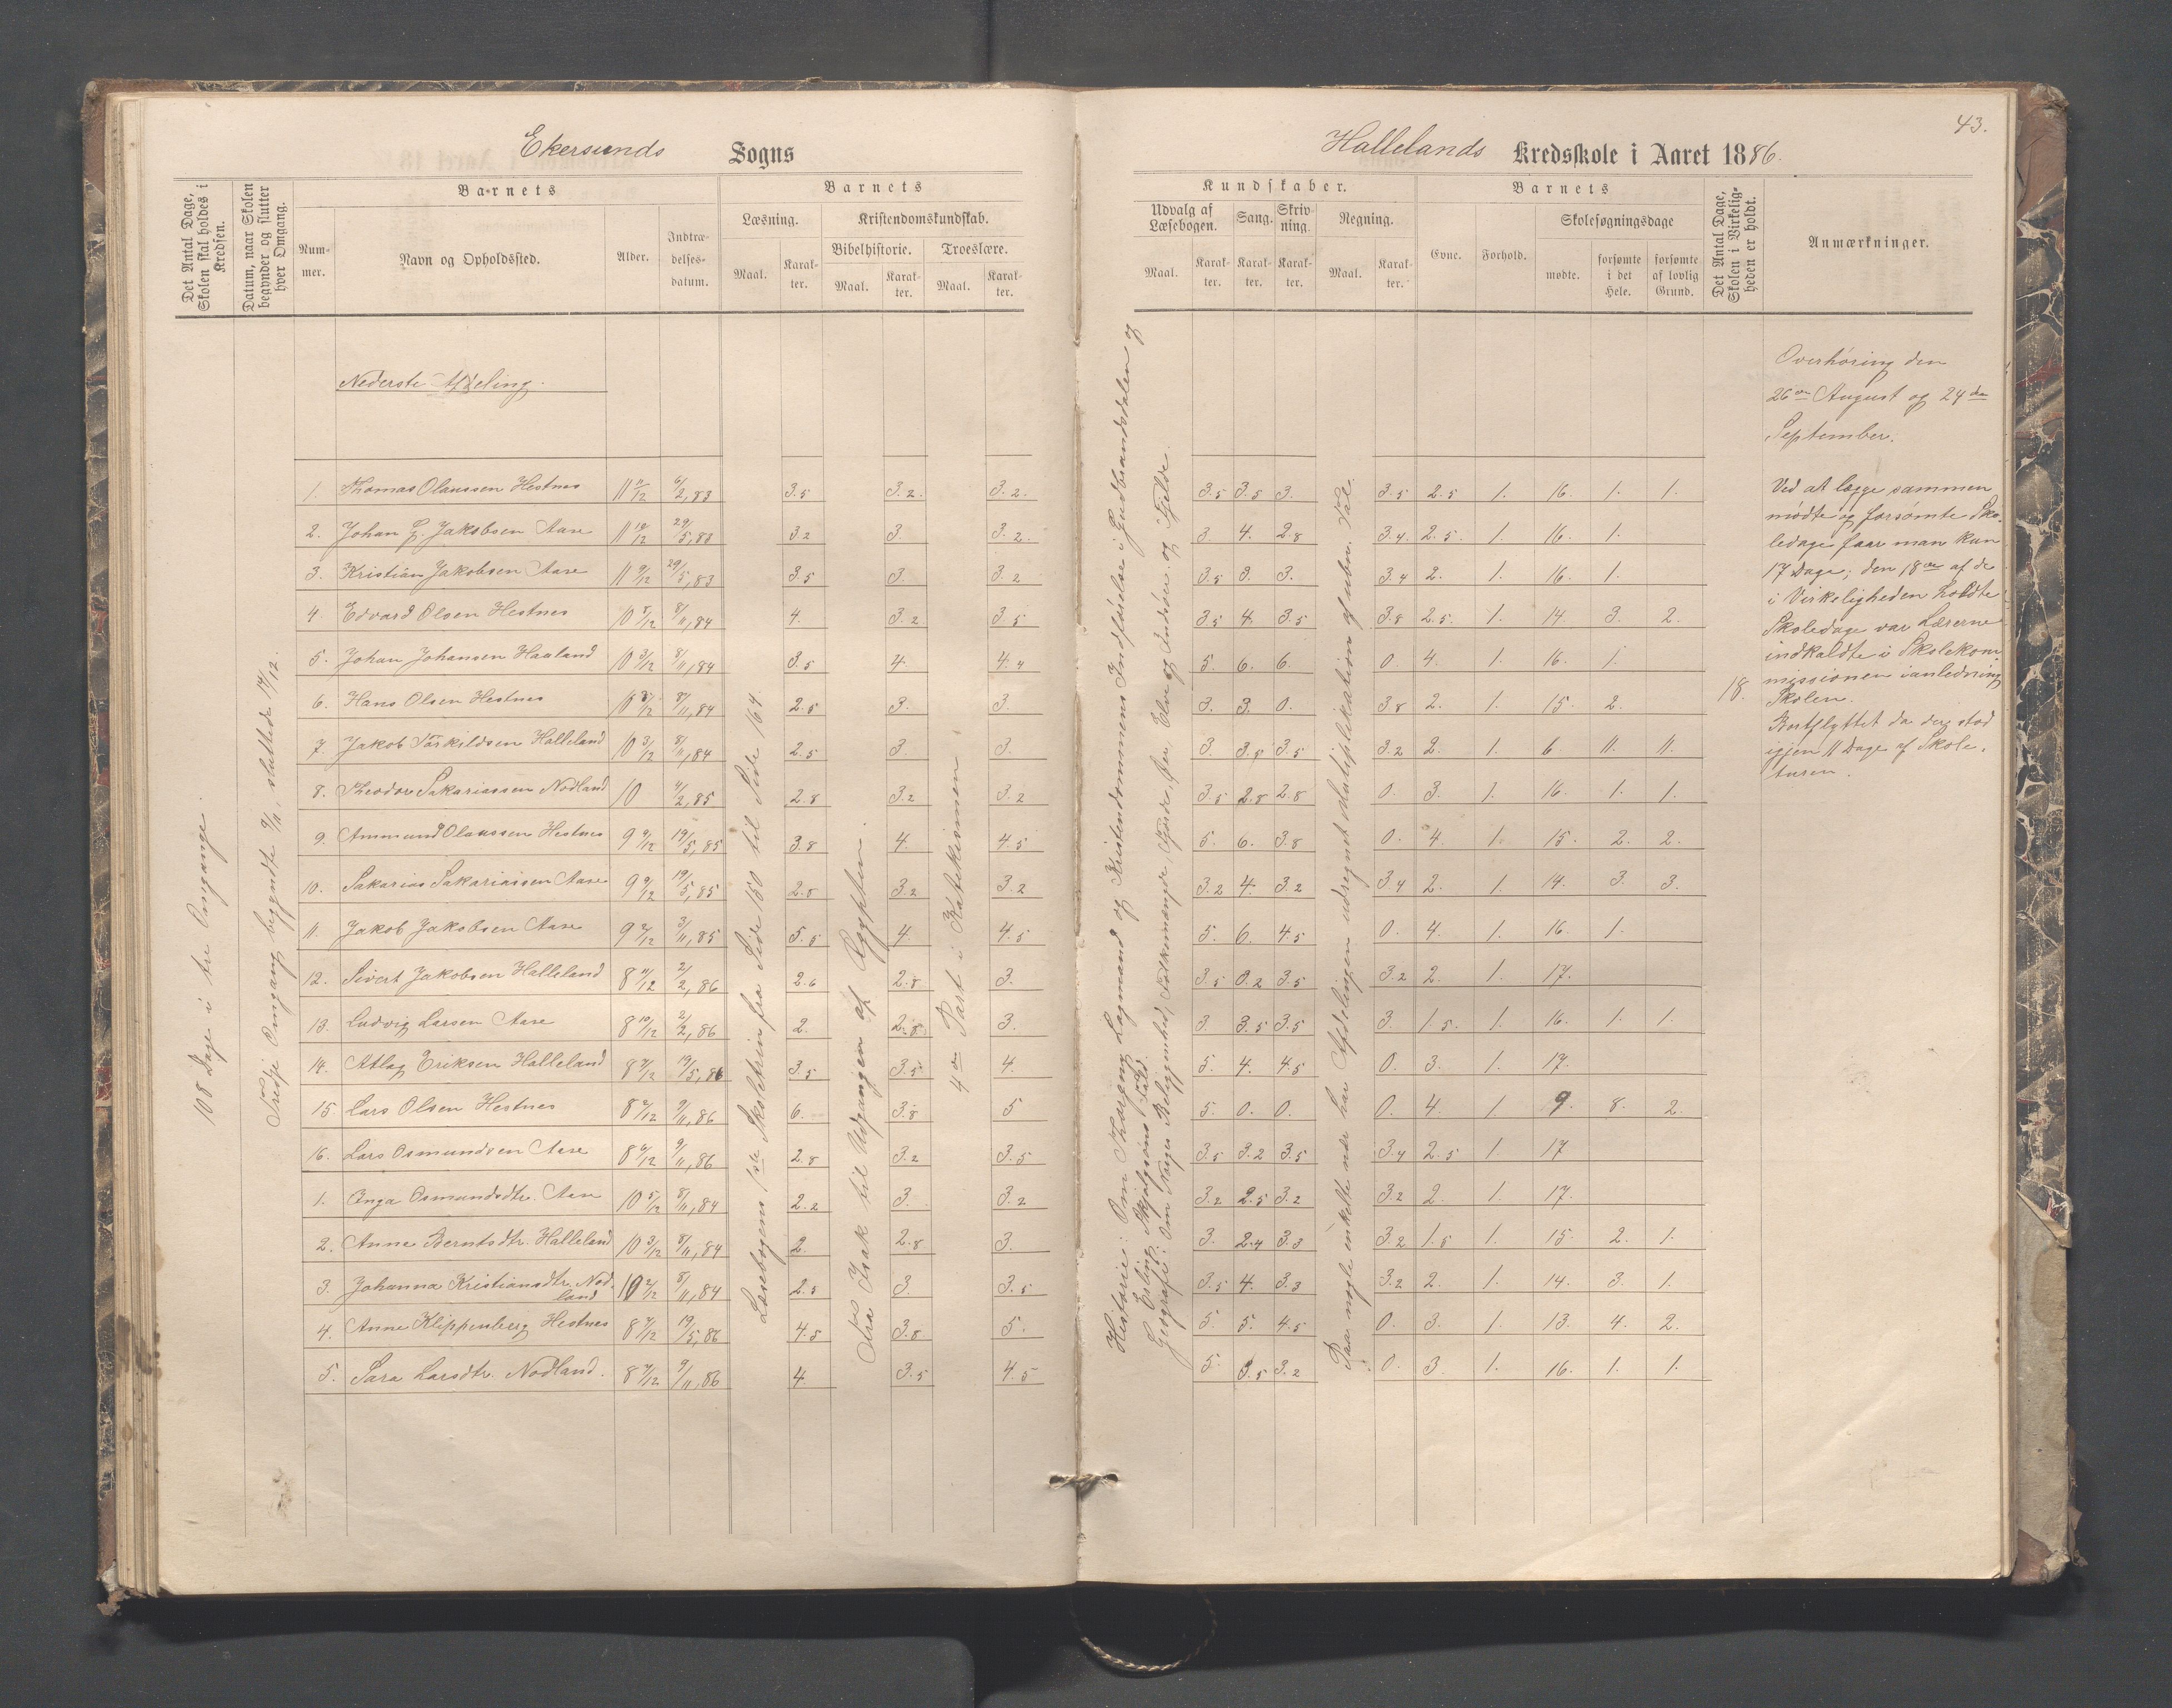 43.
Ekersunds Sogns
Hallelands Kredsskole i Aaret 1886.
Det Antal Dage, Skolen skal holdes i Kredsen.
Datum, naar Skolen begynder og slutter hver Omgang.
Barnets
Nummer.
Navn og Opholdssted.
Alder.
Indtrædelsesdatum.
Barnets
Læsning.
Maal.
Karakter.
Kristendomskundskab.
Bibelhistorie.
Maal.
Karakter.
Troeslære.
Maal.
Karakter.
Kundskaber.
Udvalg af Læsebogen.
Maal.
Karakter.
Sang.
Karakter.
Skrivning.
Karakter.
Regning.
Maal.
Karakter.
Barnets
Evne.
Forhold.
Skolesøgningsdage
mødte.
forsømte i det Hele.
forsømte af lovlig Grund.
Det Antal Dage, Skolen i Virkeligheden er holdt.
Anmærkninger.
108 Dage i tre Omgange.
Tredje Omgang begyndte 9/11, sluttede 14/12.
Nederste Afdeling.
Læsebogens 1ste Skoletrin fra Side 150 til Side 164.
Fra Isak til Udgangen af Ægypten.
4de Part i Katekismen
Historie: Om Thorgny Lagmand og Kristendommens Indførelse i Gudbrandsdalen og
Erling Skjalgsøns Fald.
Geografi: Om Norges Beliggenhed, Folkemængde, Fjorde, Øer, Elve og Indsøer og Fjelde.
Paa nogle enkelte nær har Afdelingen udregnet Multiplikation af uben. Tal.
1. Thomas Olaussen Hestnes 11 11/12 6/2, 83 3.5 3.2. 3.2. 3.5 3.5 3. 3.5 2.5 1. 16. 1. 1.
2. Johan L. Jakobsen Aase 11 10/12 29/5, 83 3.2 3. 3.2. 3. 4. 2.8 3.4. 2.5. 1. 16. 1.
3. Kristian Jakobsen Aase 11 9/12 29/5, 83 3.5 3. 3.2 3.5 3. 3. 3.4 2. 1. 16. 1.
4. Edvard Olsen Hestnes 10 5/12 8/11, 84 4. 3.2 3.5 3.5 4. 3.5 3.8 2.5. 1. 14. 3. 2.
5. Johan Johansen Haaland 10 3/12 8/11, 84 3.5 4. 4.4 5. 6. 6. 0. 4. 1. 16. 1.
6. Hans Olsen Hestnes 10 3/12 8/11, 84 2.5 3. 3. 3. 3. 0. 3.8 2. 1. 15. 2.
7. Jakob Tørkildsen Halleland 10 3/12 8/11, 84 2.5 3. 3. 3. 3.8 3.5 3.2 2. 1. 6. 11. 11.
8. Theodor Sakariassen Nodland 10 4/2, 85 2.8 3.2 3.2 3.5 2.8 2.8 0. 3. 1. 16. 1. 1.
9. Ammund Olaussen Hestnes 9 9/12 19/5, 85 3.8 4. 4.5 5. 6. 3.8 0. 4. 1. 15. 2. 2.
10. Sakarias Sakariassen Aase 9 9/12 19/5, 85 2.8 3.2 3.2 3.2 4. 3.2 3.4 2. 1. 14. 3. 3.
11. Jakob Jakobsen Aase 9 2/12 3/11, 85 5.5 4. 4.5 5. 6. 4.5 0. 4. 1. 16. 1.
12. Sivert Jakobsen Halleland 8 11/12 2/2, 86 2.6 2.8. 3. 3.5 0.2 3.5 3.2 2. 1. 17.
13. Ludvig Larsen Aase 8 10/12 2/2, 86 2. 2.8. 3. 3. 3.5 3.5 3. 1.5. 1. 16. 1. 1.
14. Atlag Eriksen Halleland 8 9/12 19/5, 86 3.5 3.5 4. 5. 4. 4.5 0. 3. 1. 17.
15 Lars Olsen Hestnes 8 2/12 9/11, 86 6. 3.8 5 5. 0. 0. 0. 4. 1. 9. 8. 2.
16. Lars Osmundsen Aase 8 6/12 9/11, 86 2.8 3.2 3.5 3.5 3.2 3.5 3.4 2.5 1. 17
1. Inga Osmundsdtr. Aase 10 5/12 8/11, 84 2.2 3. 3.2 3.2 2.5 3.2 3.2 2. 1. 17.
2. Anne Berntsdtr. Halleland 10 3/12 8/11, 84 2. 2.8 3. 3. 2.4 3.3 3.2 1.5 1. 15. 2. 1.
3. Johanna Kristiansdtr. Nodland 10 2/12 8/11, 84 2.5 3. 3.5 3.5 4. 3.3 3.2 2. 1. 14. 3. 1.
4. Anne Klippenberg Hestnes 8 7/12 19/5, 86 4.5 3.8 5. 5. 5. 4.5 0. 3. 1. 13. 4. 2.
5. Sara Larsdtr. Nodland. 8 7/12 9/11, 86 4. 3.5 4.5 5. 3.5 3.2 0. 3 1. 16. 1. 1.
18.
Overhøring den
26de August og 24de
September.
Ved at lægge sammen
mødte og forsømte Sko-
ledage faar man kun
17 Dage; den 18de af de
i Virkeligheden holdte
Skoledage var Lærerne
indkaldte i Skolekom-
missionen i anledning
Skolen.
Bortflyttet da der stod
igjen 11 Dage af Skole-
turen.